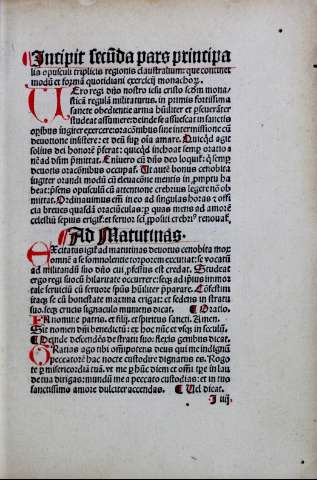 Incipit secūda pars principa
lis opusculi triplicis regionis claustralium: que continet
modū et formā quotidiani exercicij monachorꝝ.
Vero regi dn̄o nostro iesu cristo scd̄m mona
sticā regulā militaturus. in primis fortissima
sancte obedientie arma hūiliter et pseuerāter
studeat assumere: deinde se assuescat in sanctis
oꝑibus iugiter exercere: orac̄onibus sine intermissione cū
deuotione insistere: et deū suꝑ oīa amare. Quicq̄d agit
solius dei honorē pferat: quicq̄d inchoat semꝑ oratio
nē ad dīm pmittat. Enimuero cū dn̄o deo loquit̉: q̄ semꝑ
deuotis orac̄onibus occupat̉. Ut autē bonus cenobita
iugiter orandi modū cū eleuac̄one mentis in prompru ha
beat: pn̄sens opusculū cū attentione crebrius legere nō ob
mittat. Ordinauimus em̄ in eo ad singulas horas
cia breuia quasdā orac̄iuculas: ꝑ quas mens ad amorē
celestiū sepius erigit̉: et feruor sc̄i ꝓpositi crebriꝰ renouat̉.
Ad Matutinas.
Excitatus igit̉ ad matutinas deuotus cenobita mox
omnē a se somnolentie torporem excutiat: se vocatū
ad militandū suo dn̄o cui pfessus est credat. Studeat
ergo regi suo cū hilaritate occurrere: seqꝫ ad ipsius immor
tale seruiciū cū feruore spūs hūiliter pparare. Celestim
itaqꝫ se cū honestate maxima erigat: et sedens in stratu
suo. seqꝫ crucis signaculo muniens dicat. Oratio.
In nomine patris. et filij. et spiritus sancti. Amen.
Sit nomen dn̄i benedictū: ex hoc nūc et vsqꝫ in seculū.
Deinde descendēs de stratu suo: flexis genibus dicat.
Gratias ago tibi omīpotens deus qui me indignū
peccatorē hac nocte custodire dignatus es. Rogo
te ꝑ misericordiā tuā. vt me ꝑ hūc diem et omī tpe in lau
de tua dirigas: mundū me a peccato custodias: et in tuo
sanctissimo amore dulciter accendas. Uel dicat.
I iiij